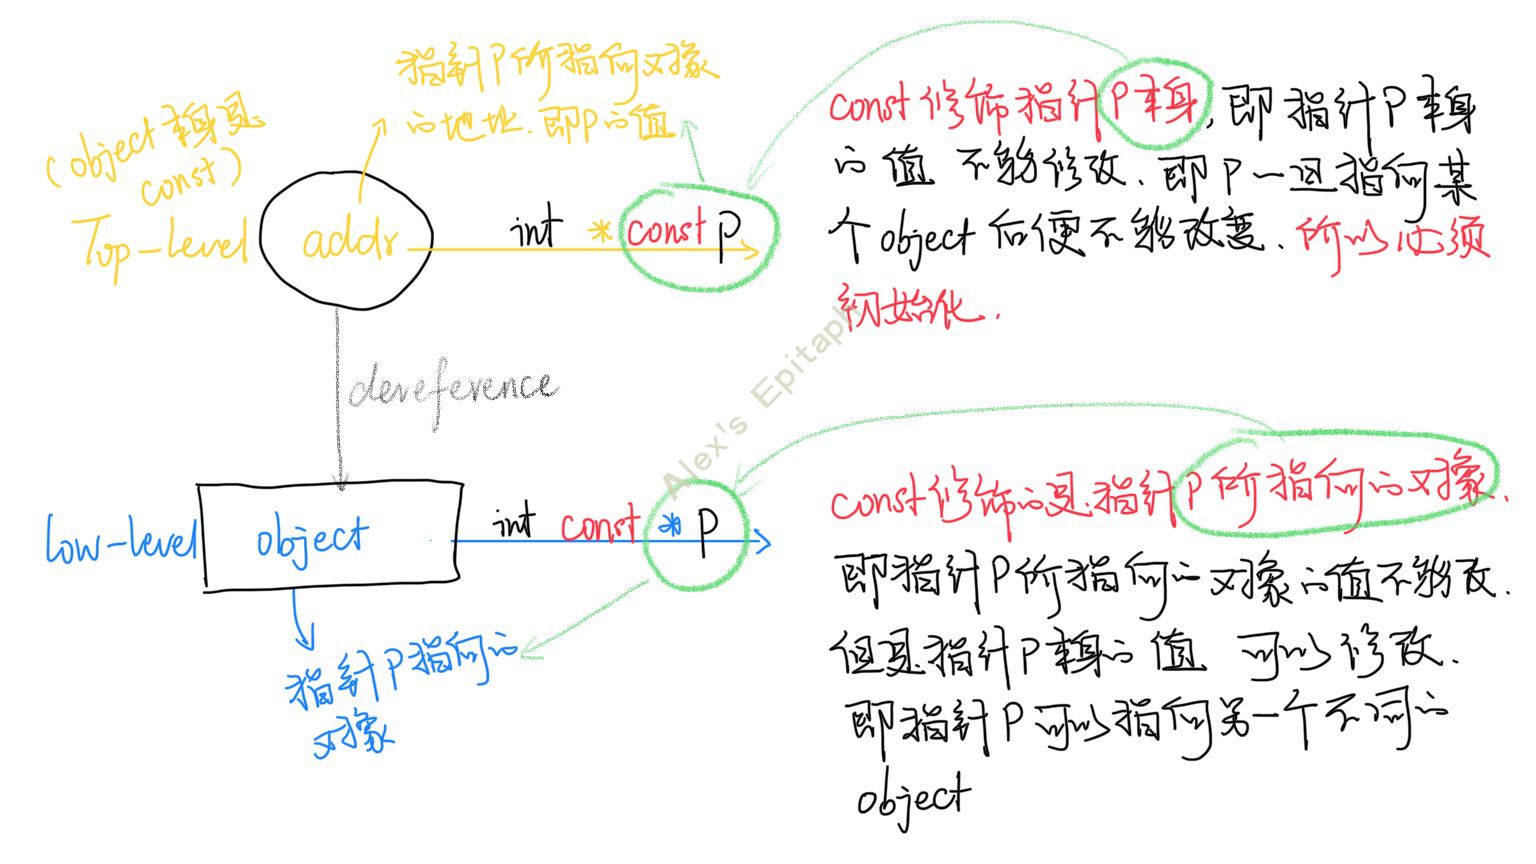 指针P所指向对象
的地址.即P的值
(object本身是
const)
Top-level
addr
int * const P
const修饰指针P本身,即指针P本身
的值 不能修改.即P一旦指向某
个object后便不能改变.所以必须
初始化.
dereference
Alex's Epitaph
low-level
object
int const * P
指针P指向的
对象
const修饰的是指针P所指向的对象.
即指针P所指向的对象的值不能改.
但是指针P本身的值 可以修改.
即指针P可以指向另一个不同的
object